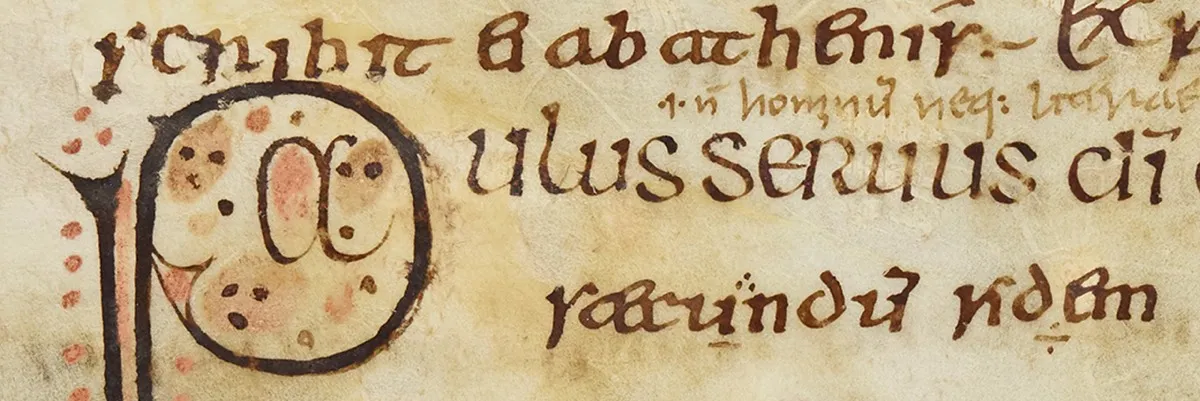 scribit ei ab athenis.
.i. n̄ hominū neq:
Paulus seruus dī
secundū fidem